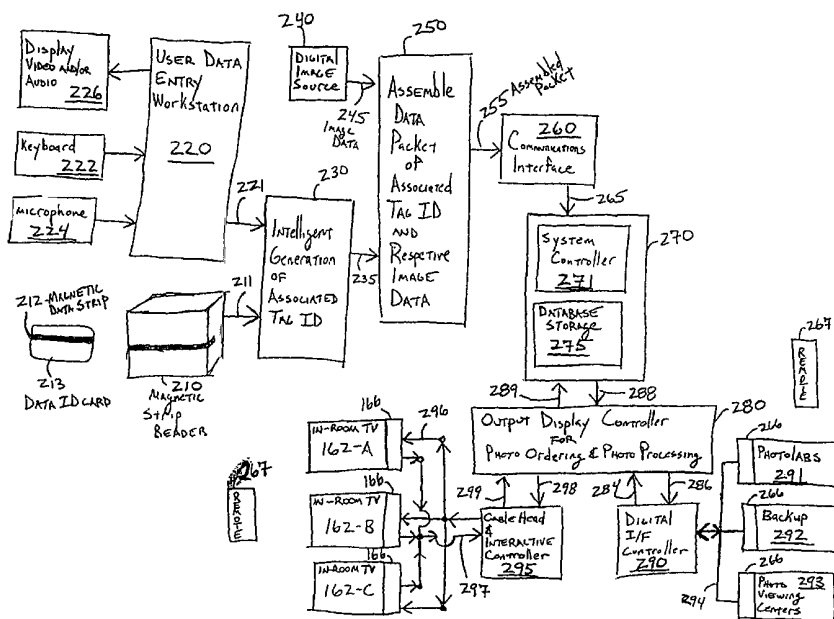 Display
Video and/or
Audio
226
Keyboard
222
Microphone
224
User Data
Entry
Workstation
220
221
212-Magnetic
Data Strip
213
Data ID Card
211
210
Magnetic
Strip
Reader
230
Intelligent
Generation
of
Associated
Tag ID
235
240
Digital
Image
Source
245
Image
Data
250
Assemble
Data
Packet of
Associated
Tag ID
and
Respetive
Image
Data
255 Assembled
Packet
260
Communications
Interface
265
270
System
Controller
271
Database
Storage
275
267
Remote
289
288
280
Output Display Controller
for
Photo Ordering & Photo Processing
299
298
284
286
166
296
In-Room TV
162-A
166
In-Room TV
162-B
166
In-Room TV
162-C
267
Remote
297
Cable Head
&
Interactive
Controller
295
Digital
I/F
Controller
290
294
266
Photolabs
291
266
Backup
292
266
Photo 293
Viewing
Centers